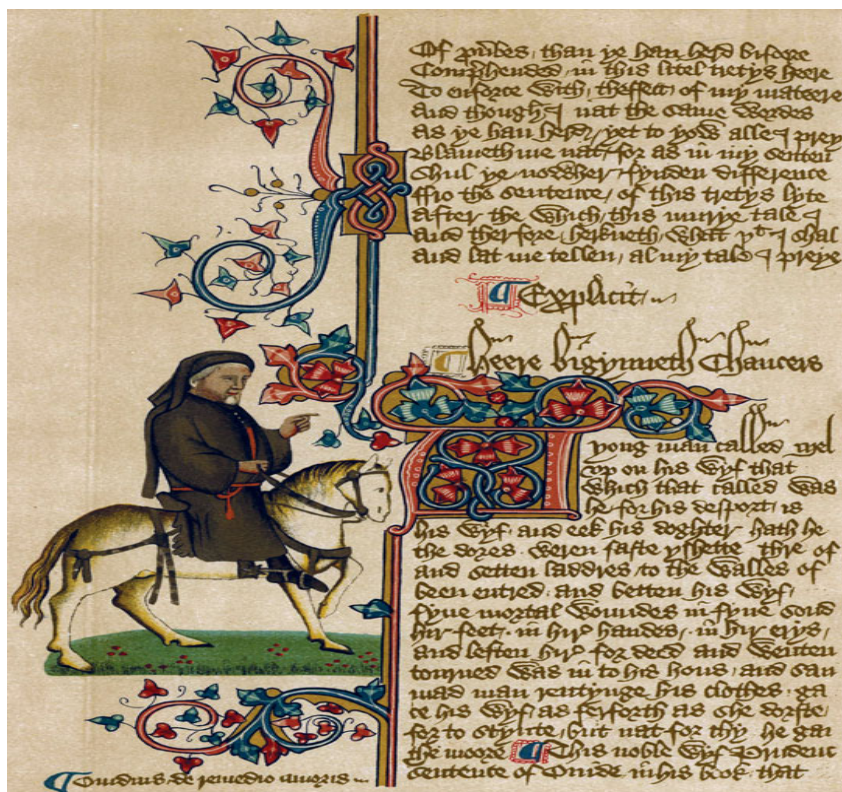 Of proubes, than ye han herd bifore
Comprehended, in this litel tretys heere
To enforce with, theffect, of my mateere
And though I nat the same wordes
as ye han herd, yet to yow alle I prey
Blameth me nat, for as in my senten
Shul ye nowher, fynden difference
ffro the sentence, of this tretys lyte
after the which, this murye tale I
and therfore, herkneth, what yt I shal
and lat me tellen, al my tale I preye
Explicit
Heere bigynneth Chaucers
yong man called Mel
vp on his wyf that
which that called was
he for his desport, is
his wyf, and eek his doghter hath he
the dores weren faste yshette thre of
and setten laddres to the walles of
been entred, and betten his wyf,
fyue mortal woundes in fyue sond
hir feet, in hire handes, in hir erys,
and leften hire for deed and wenten
tourned was in to his hous, and sau
mad man rentynge his clothes, ga
ce his wyf, as ferforth as she dorste,
for to stynte, but nat for thy he gan
the moore This noble wyf Prudenc
sentence of Ouide in his book, that
Ouidius, de remedio amoris